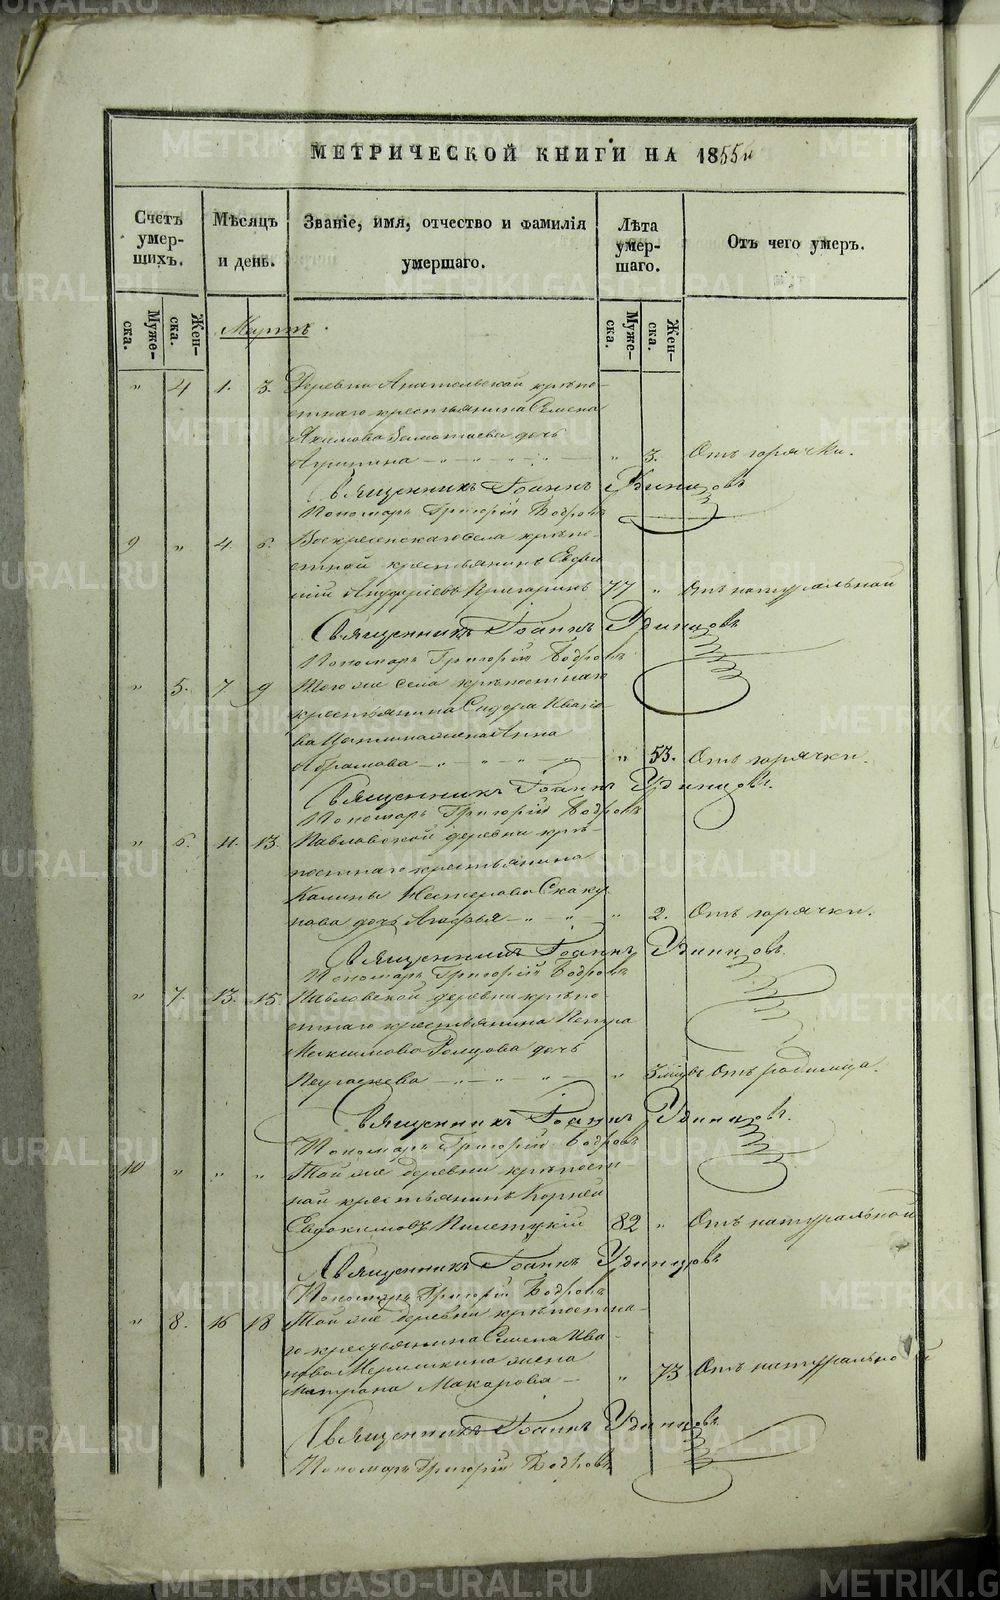 МЕТРИЧЕСКОЙ КНИГИ НА 1855й
Счетъ умер-щихъ.
Мѣсяцъ и день.
Званіе, имя, отчество и фамилія умершаго.
Лѣта умер-шаго.
Отъ чего умеръ.
Муже-ска.
Жен-ска.
Муже-ска.
Жен-ска.
Мартъ.
" 4 1. 3. Деревни крѣпо-
стнаго крестьянина Семена
Акимова дочь
" 3. Отъ горячки.
Священникъ Іоаннъ Удинцовъ
Пономарь Григорій Бобровъ
9 " 4. 6. Воскресенскаго села крѣпо-
стной крестьянинъ
77 " Отъ натуральной
Священникъ Іоаннъ Удинцовъ
Пономарь Григорій Бобровъ
" 5. 7. 9 Того же села крѣпостнаго
крестьянина Сидора Ивано-
ва жена Анна
Абрамова " 53. Отъ горячки.
Священникъ Іоаннъ Удинцовъ.
Пономарь Григорій Бобровъ
" 6. 11. 13. Павловской деревни крѣ-
постнаго крестьянина
Калины Нестерова Скаку
нова дочь Агафья " 2. Отъ горячки.
Священникъ Іоаннъ Удинцовъ.
Пономарь Григорій Бобровъ
" 7. 13. 15. Павловской деревни крѣпо-
стнаго крестьянина Петра
Максимова дочь
" 3 Отъ родимца.
Священникъ Іоаннъ Удинцовъ.
Пономарь Григорій Бобровъ
10 " " " Той же деревни крѣпост
ной крестьянинъ Корней
Евдокимовъ 82 " Отъ натуральной
Священникъ Іоаннъ Удинцовъ
Пономарь Григорій Бобровъ
" 8. 16 18 Той же деревни крѣпостна-
го крестьянина Семена Ива-
нова жена
Матрона Макарова " 73 Отъ натуральной
Священникъ Іоаннъ Удинцовъ
Пономарь Григорій Бобровъ
METRIKI.GASO-URAL.RU